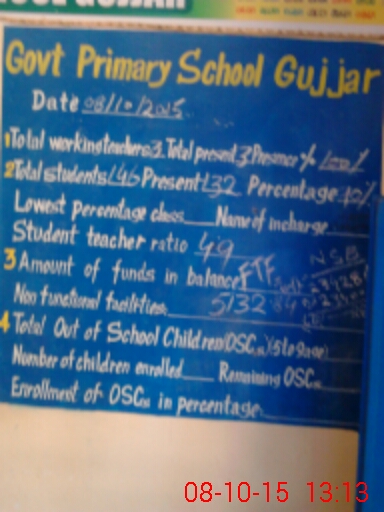 Govt Primary School Gujjar
Date 08/10/2015
1 Total working teachers 3 Total present 3 Presence % 100%
2 Total students 146 Present 132 Percentage %
Lowest percentage class Name of incharge
Student teacher ratio 49
3 Amount of funds in balance FTF NSB
Non functional facilities 5132
4 Total Out of School Children (OSC) (5 to 9 age)
Number of children enrolled Remaining OSC
Enrollment of OSC in percentage
08-10-15 13:13